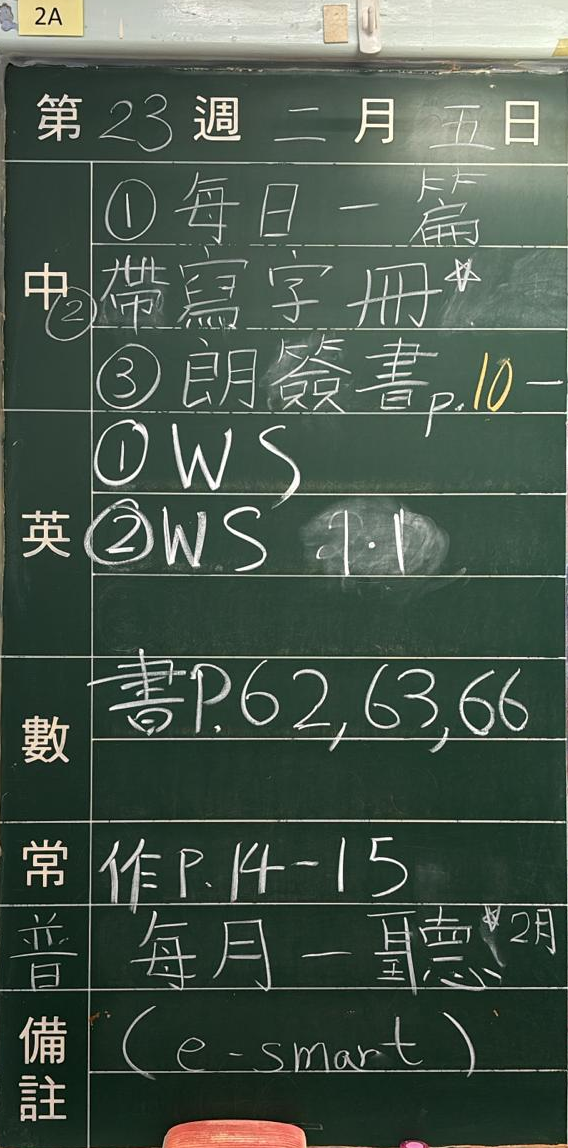 2A
第 23 週 二 月 五 日
中
① 每日一篇
② 帶寫字冊☆
③ 朗簽書p.10-
英
① WS
② WS 1.1
數
書P.62,63,66
常
作P.14-15
普
每月一聽☆2月
備註
(e-smart)